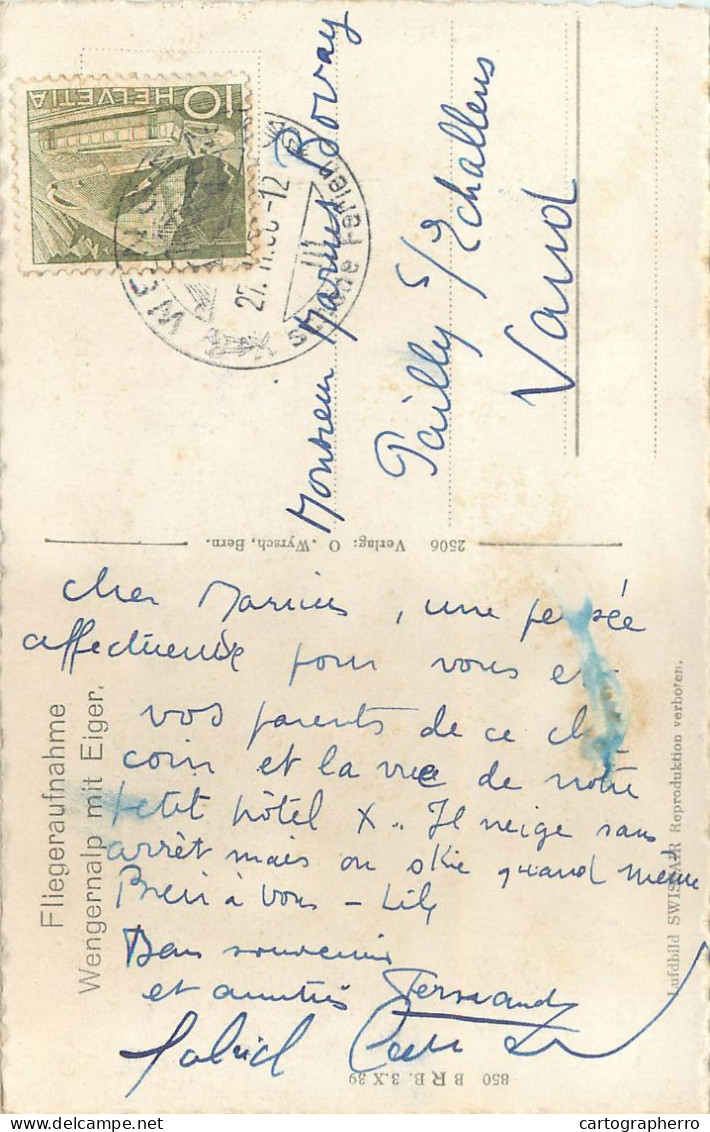 HELVETIA 10
WENGEN
Schöne Ferien
-12
III
Monsieur Marius Bovay
Pailly s/Echallens
Vaud
2506 Verlag: O. Wyrsch, Bern.
Cher Marius, une pensée
affectueuse pour vous et
vos parents de ce
coin et la vue de notre
petit hôtel X.. Il neige sans
arrêt mais on skie quand même
Bien à vous - Lily
Bon souvenir
et amitiés Fernand
Gabriel
Fliegeraufnahme
Wengernalp mit Eiger.
Lufdbild SWISSAIR Reproduktion verboten.
850 B R B. 3.X 39
cartographerro